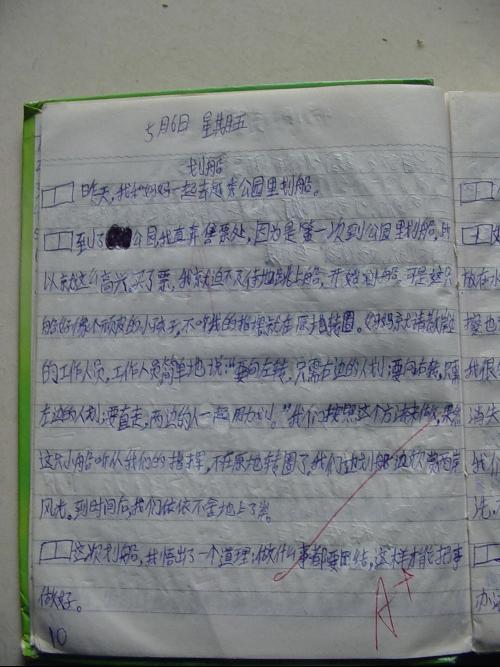 5月6日 星期五
划船
昨天,我和妈妈一起去 公园里划船。
到了 公园,我直奔售票处,因为是第一次到公园里划船,所
以就这么高兴。买了票,我就迫不及待地跳上船,开始划船,可是这只
船好像个顽皮的小孩子,不听我的指挥就在原地转圈。妈妈就请教岸边
的工作人员,工作人员简单地说:“要向左转,只需右边的人划;要向右转,只需
左边的人划;要直走,两边的人一起用力划。”我们按照这个方法来做,果然
这只小船听从我们的指挥,不在原地转圈了。我们边划船边欣赏两岸
风光。到时间后,我们依依不舍地上了岸。
这次划船,我悟出了一个道理:做什么事都要团结,这样才能把事
做好。
A+
10
放在水
我很
消失
我们
先,
办法